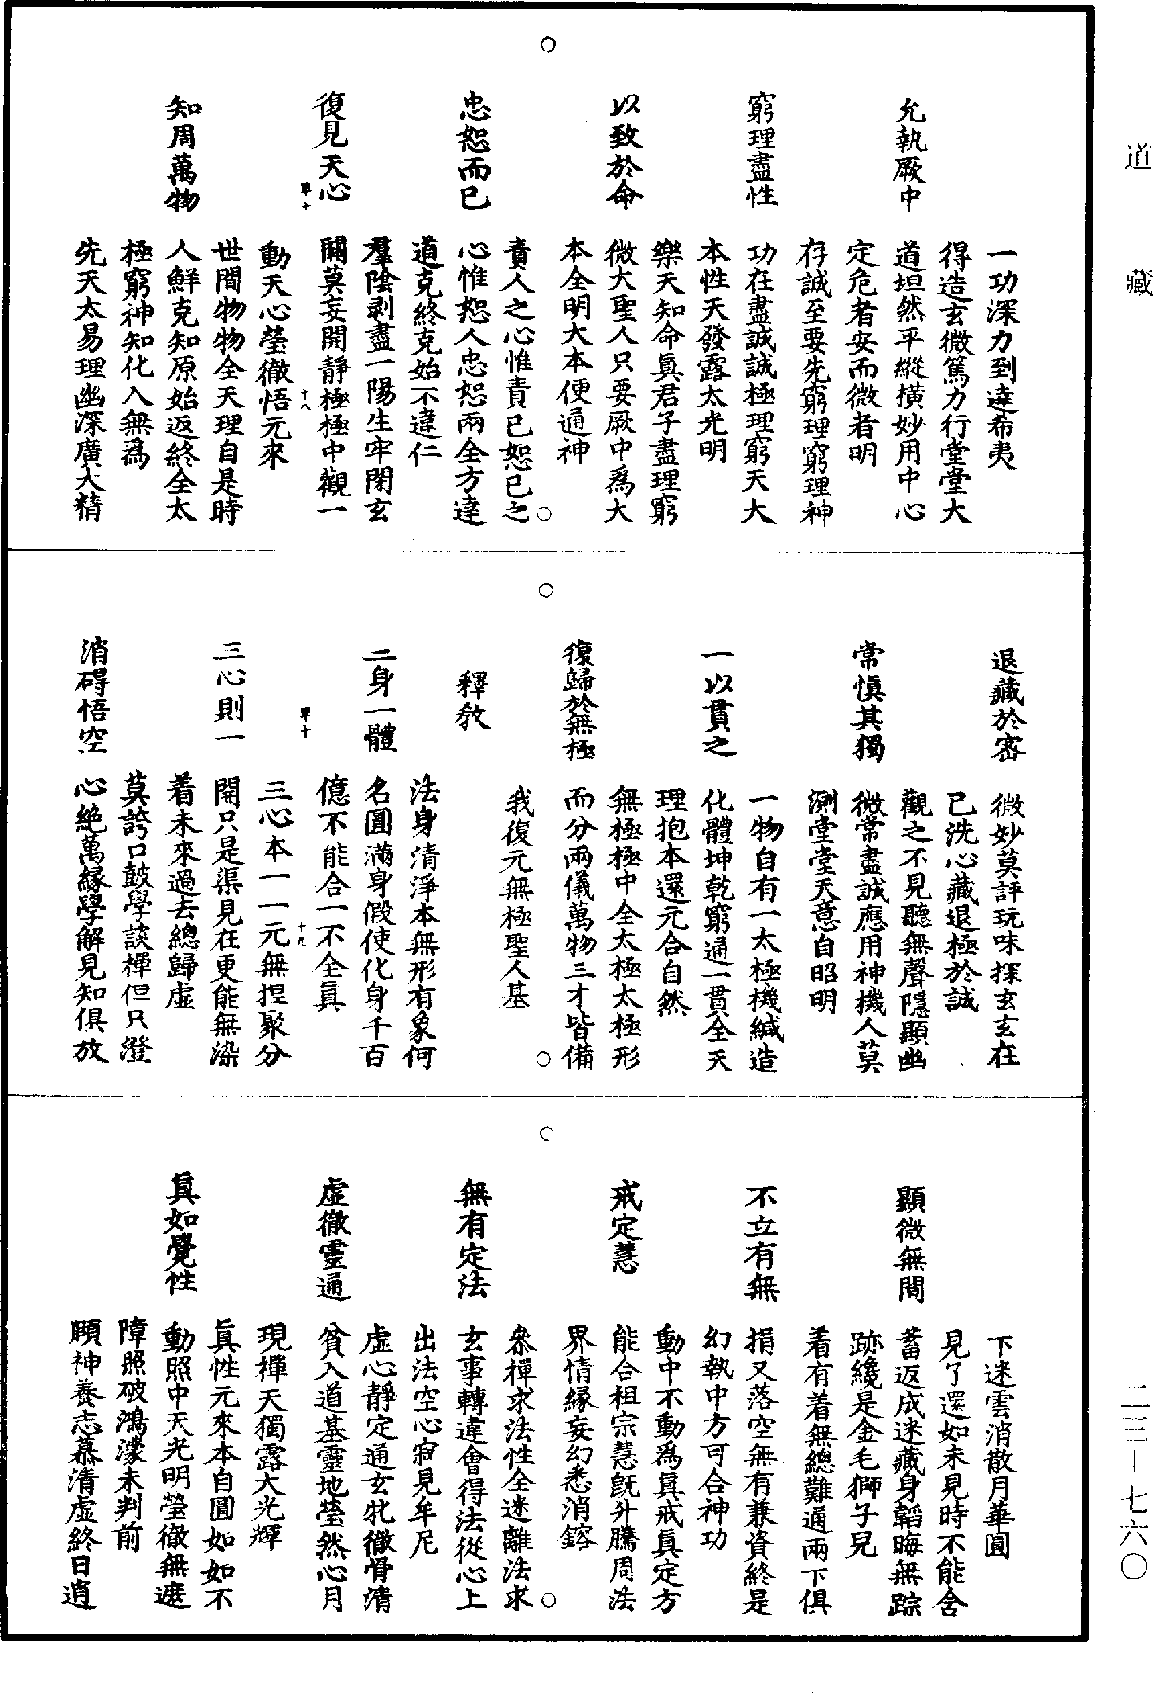 道藏
一功深力到達希夷
允執厥中
得造玄微篤力行堂堂大
道坦然平縱橫妙用中心
定危者安而微者明
窮理盡性
存誠至要先窮理窮理神
功在盡誠誠極理窮天大
本性天發露太光明
以致於命
樂天知命眞君子盡理窮
微大聖人只要厥中爲大
本全明大本便通神
忠恕而已
責人之心惟責已恕已之
心惟恕人忠恕兩全方達
道克終克始不違仁
復見天心
羣陰剥盡一陽生牢閉玄
關莫妄開靜極極中觀一
單十
十八
動天心瑩徹悟元來
知周萬物
世間物物全天理自是時
人鮮克知原始返終全太
極窮神知化入無爲
先天太易理幽深廣大精
退藏於密
微妙莫評玩味探玄玄在
已洗心藏退極於誠
常愼其獨
觀之不見聽無聲隱顯幽
微常盡誠應用神機人莫
測堂堂天意自昭明
一以貫之
一物自有一太極機緘造
化體坤乾窮通一貫全天
理抱本還元合自然
復歸於無極
無極極中全太極太極形
而分兩儀萬物三才皆備
我復元無極聖人基
釋敎
二身一體
法身清淨本無形有象何
名圓滿身假使化身千百
億不能合一不全眞
單十
十九
三心則一
三心本一一元無捏聚分
開只是渠見在更能無染
着未來過去總歸虛
消碍悟空
莫誇口鼓學談禪但只澄
心絶萬緣學解見知俱放
下迷雲消散月華圓
顯微無間
見了還如未見時不能舍
蓄返成迷藏身韜晦無踪
跡纔是金毛獅子兒
不立有無
着有着無總難通兩下俱
捐又落空無有兼資終是
幻執中方可合神功
戒定慧
動中不動爲眞戒眞定方
能合祖宗慧旣升騰周法
界情緣妄幻悉消鎔
無有定法
參禪求法性全迷離法求
玄事轉違會得法從心上
出法空心寂見牟尼
虛徹靈通
虛心靜定通玄牝徹骨清
貧入道基靈地瑩然心月
現禪天獨露大光輝
眞如覺性
眞性元來本自圓如如不
動照中天光明瑩徹無遮
障照破鴻濛未判前
頤神養志慕清虛終日逍
二三—七六〇